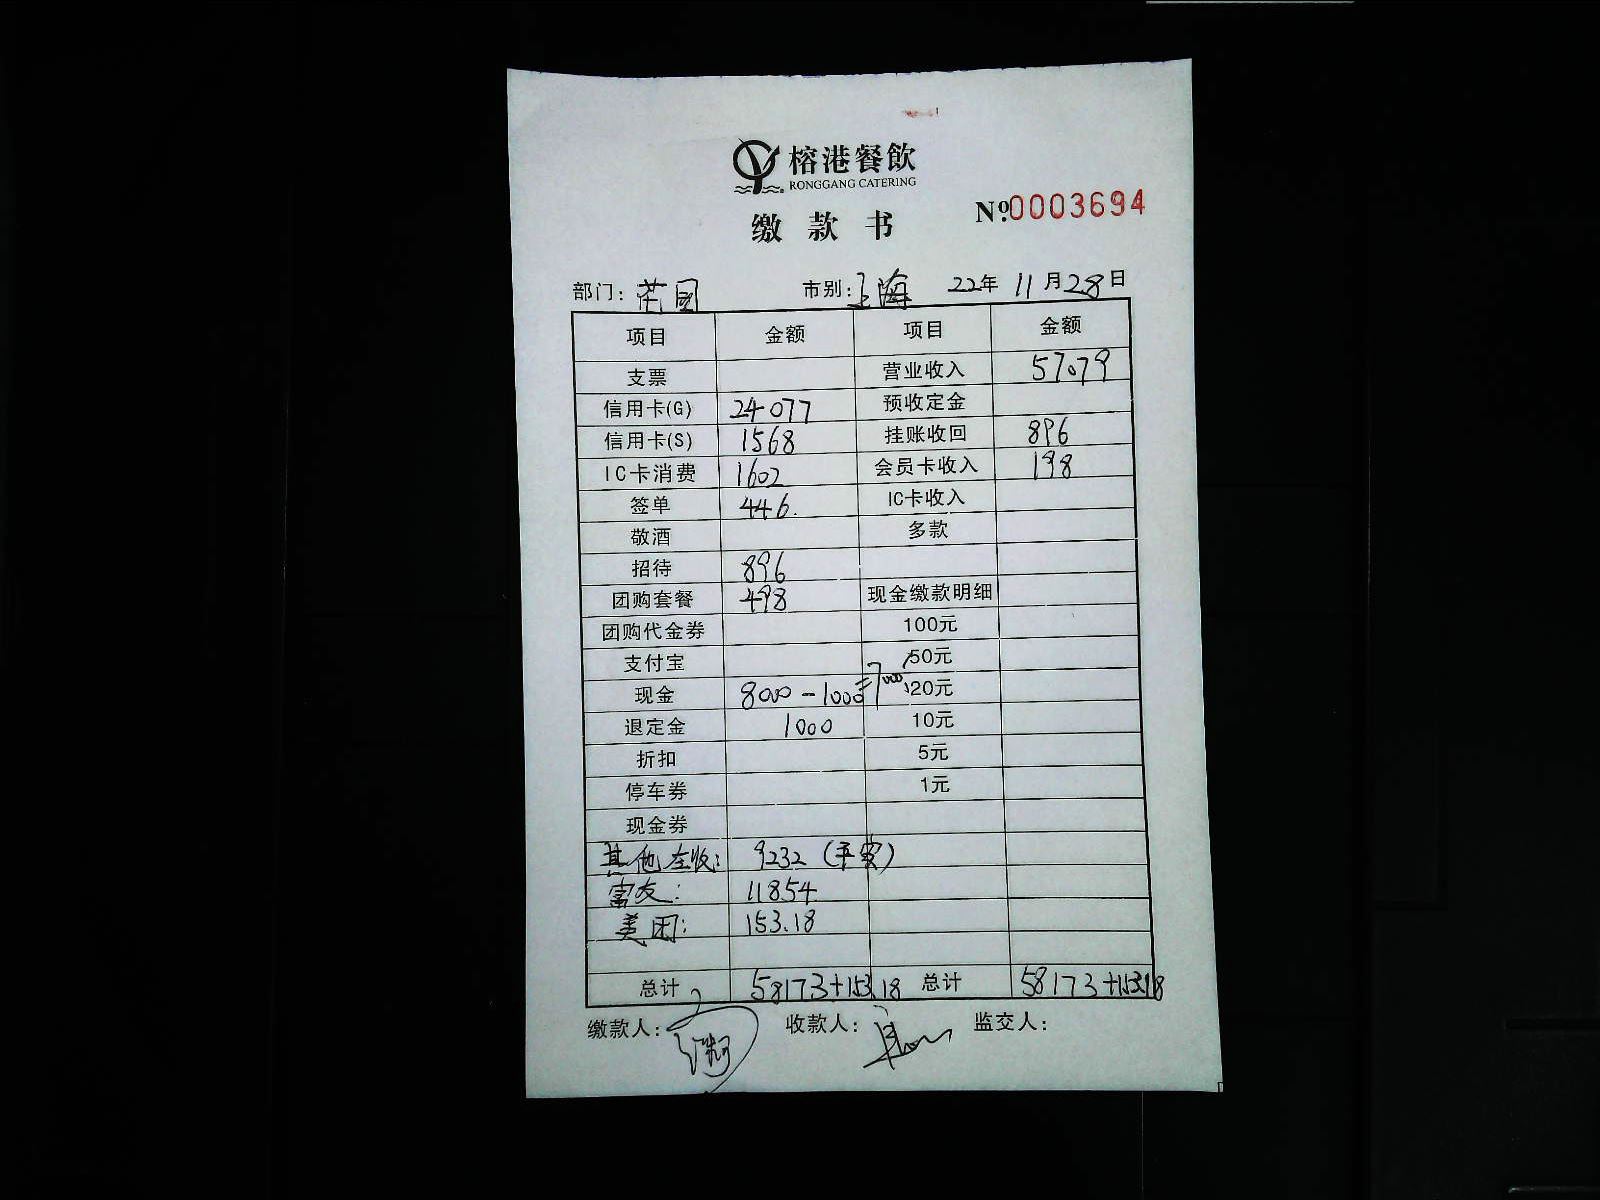 榕港餐飲
RONGGANG CATERING
缴款书 Nº.0003694
部门: 市别:上海 22年11月28日
项目 金额 项目 金额
支票 营业收入 57079
信用卡(G) 24077 预收定金
信用卡(S) 1568 挂账收回 896
IC卡消费 1602 会员卡收入 198
签单 446. IC卡收入
敬酒 多款
招待 896
团购套餐 498 现金缴款明细
团购代金券 100元
支付宝 50元
现金 8000-1000=7000 20元
退定金 1000 10元
折扣 5元
停车券 1元
现金券
其他在收: 9232 (平安)
富友: 11854
美团: 153.18
总计 58173+153.18 总计 58173+153.18
缴款人: 收款人: 监交人: